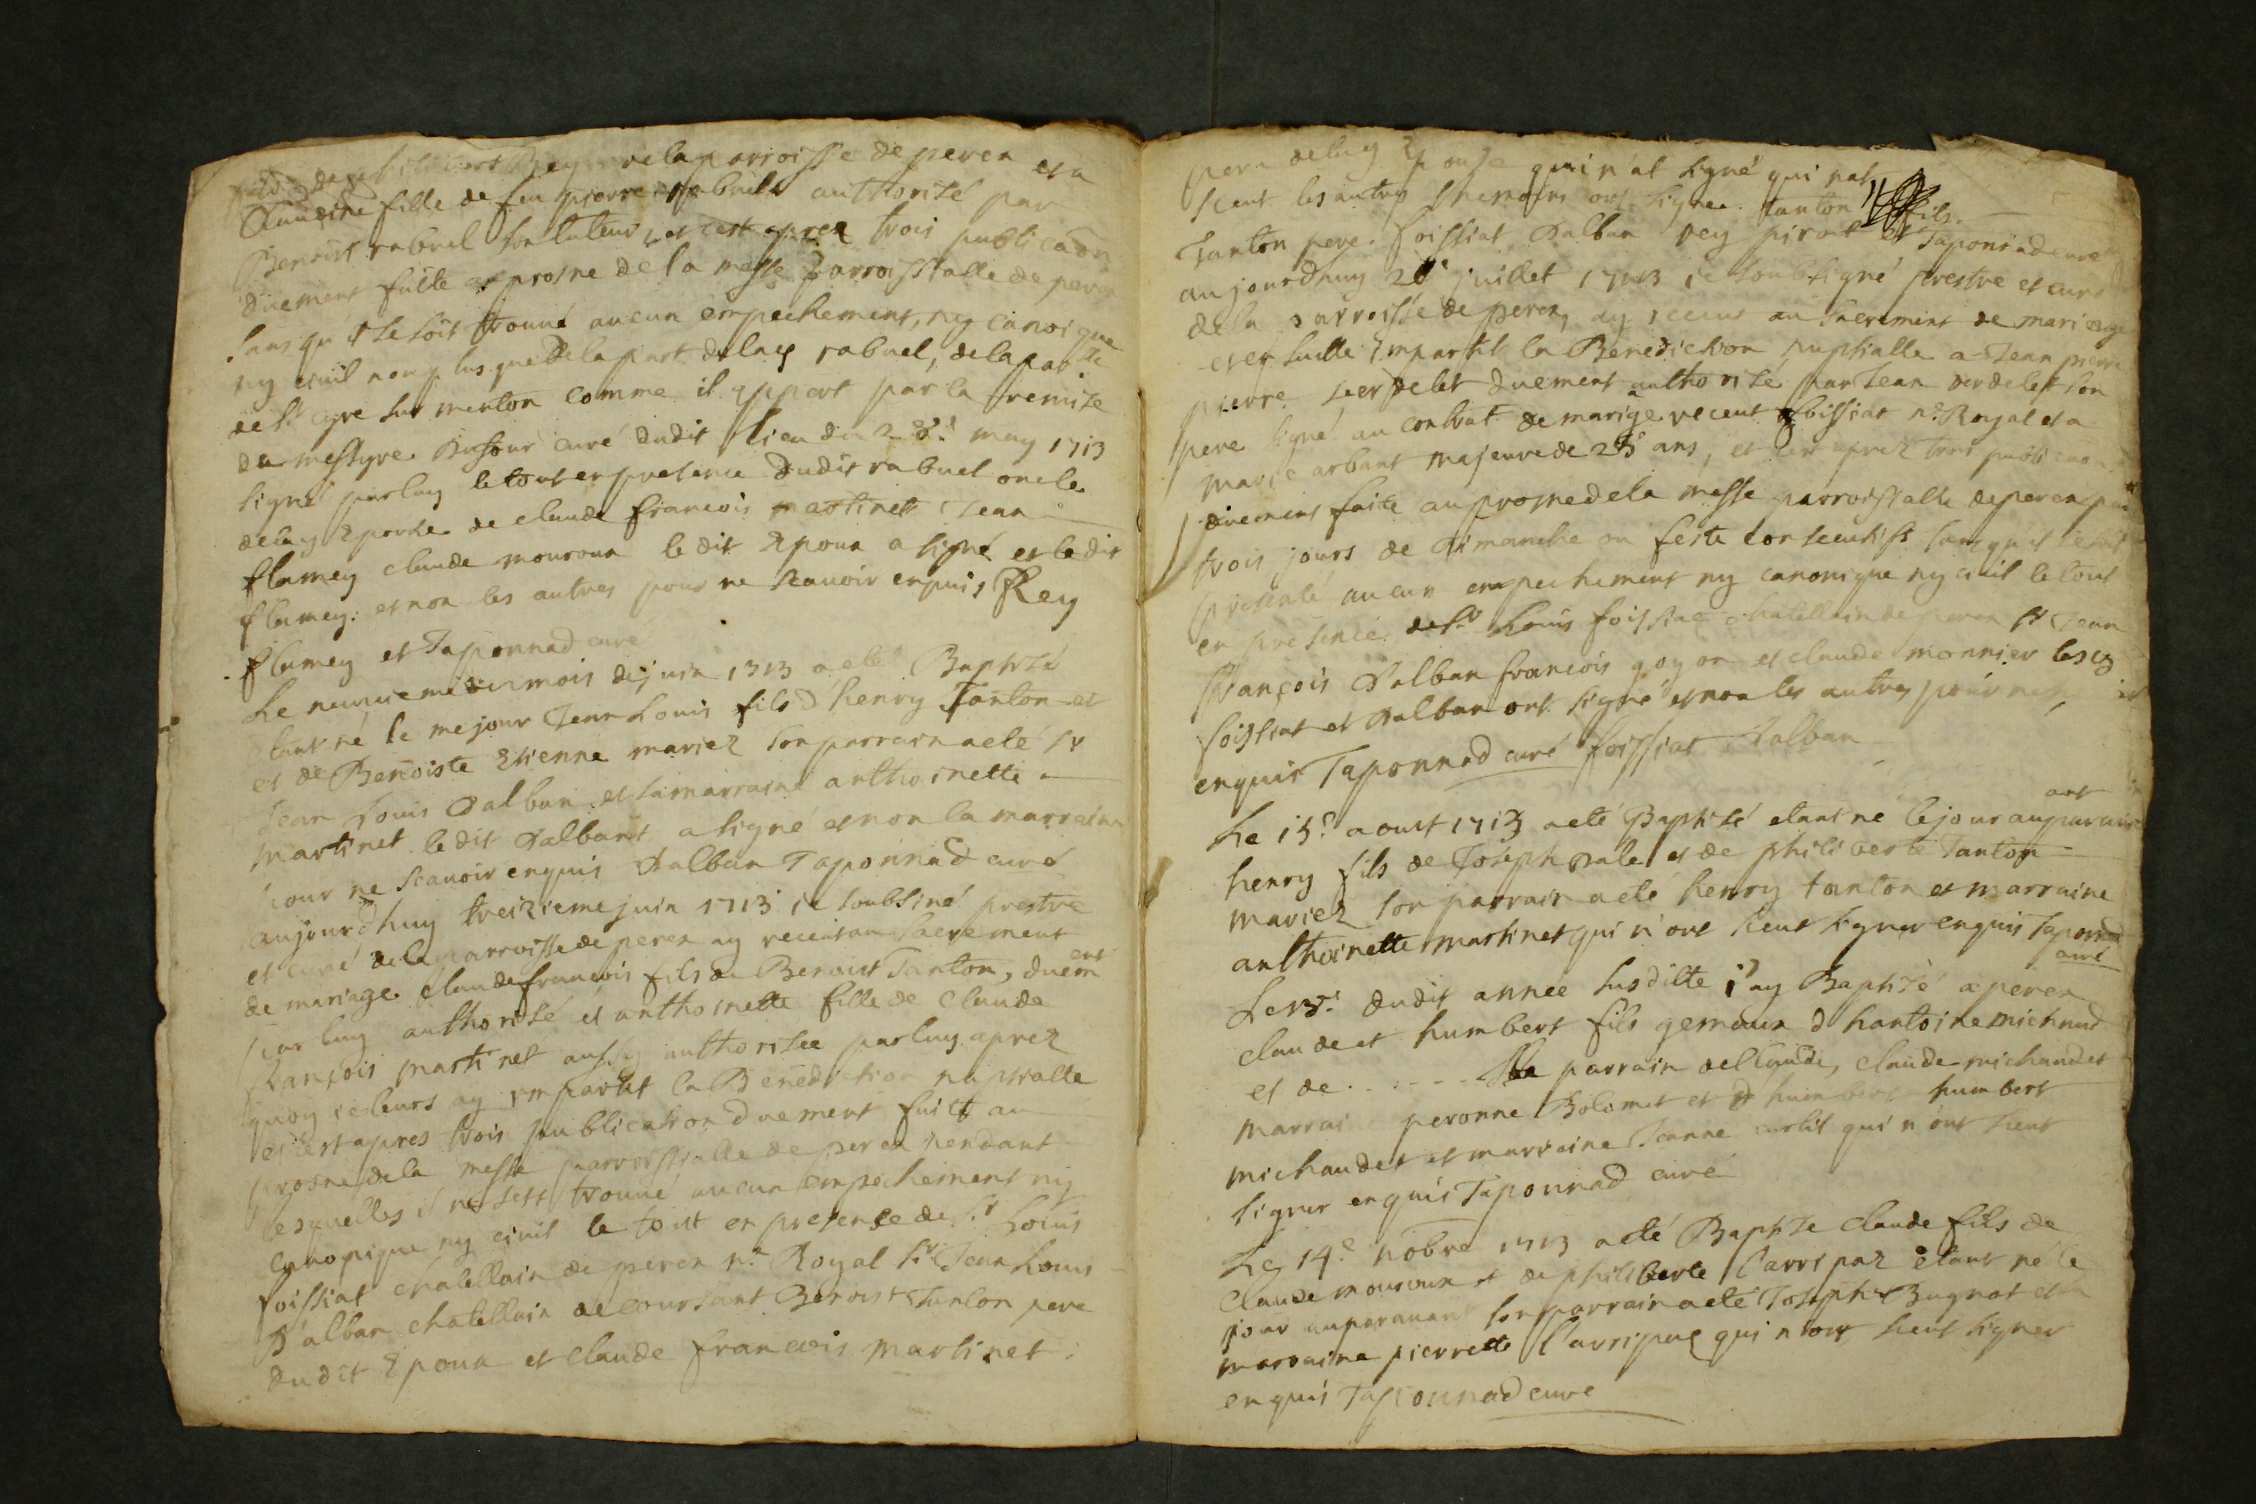 Rey de la parroisse de peren et a
Claudine fille de feu pierre rabuel authorisé par
Benoist rabuel son tuteur, et cest aprez trois publicaon
duement faitte au prosne de la messe parroissialle de peren
sans qu il se soit trouué aucun empechement, ny canonique
ny ciuil non plus que de la part de lad rabuel, de la parlle
de st cyre sur menton comme il appert par la remise
de messyre curé dudit lieu du 28e may 1713
signé par luy le tout en presence dudit rabuel oncle
de lad Epouse de claude francois martinet Jean
flamey claude mouroux le dit Epoux a signé et le dit
flamey. et non les autres pour ne scauoir enquis Rey
flumey et Taponnad curé
Le neuuieme du mois de juin 1713 a eté Baptisé
étant né le me jour Jean Louis fils d henry Tanton et
et de Benoiste Etienne mariez son parrain a eté sr
Jean Louis Dalban et sa marraine anthoinette
martinet le dit Dalbant a signé et non la marraine
pour ne scauoir enquis Dalban Taponnad curé
aujourdhuy treizieme juin 1713 ie soubsiné prestre
et curé de la parroisse de peren ay receu au sacrement
de mariage claude francois fils de Benoist Tanton, duement
par luy authorisé et anthoinette fille de claude
françois martinet aussy authorisée par luy aprez
quoy ie leurs ay impartit la Benediction nuptialle
et cest apres trois publication duement fuitt au
prosne de la messe parroissialle de peren pendant
lesquelles il ne sest trouué aucun empechement ny
canonique ny ciuil le tout en presence de sr Louis
foissiat chatellain de peren nre Royal sr Jean Louis
Dalban chatellain de coursant Benoist Tanton pere
dudit Epoux et claude francois martinet
pere de lad Epouse qui n'at signé qui nat
sceut les autres themoins ont signee. tanton fils.
Tanton pere. foissiat Dalban rey pirat et Taponnad curé
aujourdhuy juillet 1713 ie soubsigné prestre et curé
de la parroisse de peren, ay receus au sacrement de mariage
et en suitte impartit la Benediction nuptialle a Jean pierre
pierre verdelet duement authorisé par Jean verdelet son
pere signé au contrat de mariage receut foissiat nre Royal et a
marie arbant majeure de 25 ans, et cest aprez trois publicaon
duement faite au prosne de la messe parroissialle de peren par
trois jours de dimanche ou feste consecutifs sans qu il se soit
presenté aucun empechement ny canonique ny ciuil le tout
en presence de sr Louis foissiat chatellain de peren sr Jean
François Dalban francois goyon et claude monnier lesd
foissiat et Dalban ont signé et non les autres pour ne
enquis Taponnad curé foissiat Dalban
Le 15e aoust 1713 a eté Baptisé etant né le jour auparauant
henry fils de Joseph Dale et de philiberte Tanton
mariez son parrain a eté henry tanton et marraine
anthoinette martinet qui n'ont sceut signer enquis Taponnad
curé
Le dudit année susditte i'ay Baptisé a peren
claude et humbert fils gemaux d hantoine michaud
et de . . . . . . Le parrain de claude, claude michaudet
marraine peronne Bolomet et d humbert humbert
michaudet et marraine Jeanne curtit qui n'ont sceut
signer enquis Taponnad curé
Le 14e nobre 1713 a eté Baptise claude fils de
claude mouroux et de philiberte Carrspaz etant né le
jour auparauant son parrain a eté Joseph Bugnot et
marraine pierrette Carripaz qui n'ont sceut signer
enquis Taponnad curé